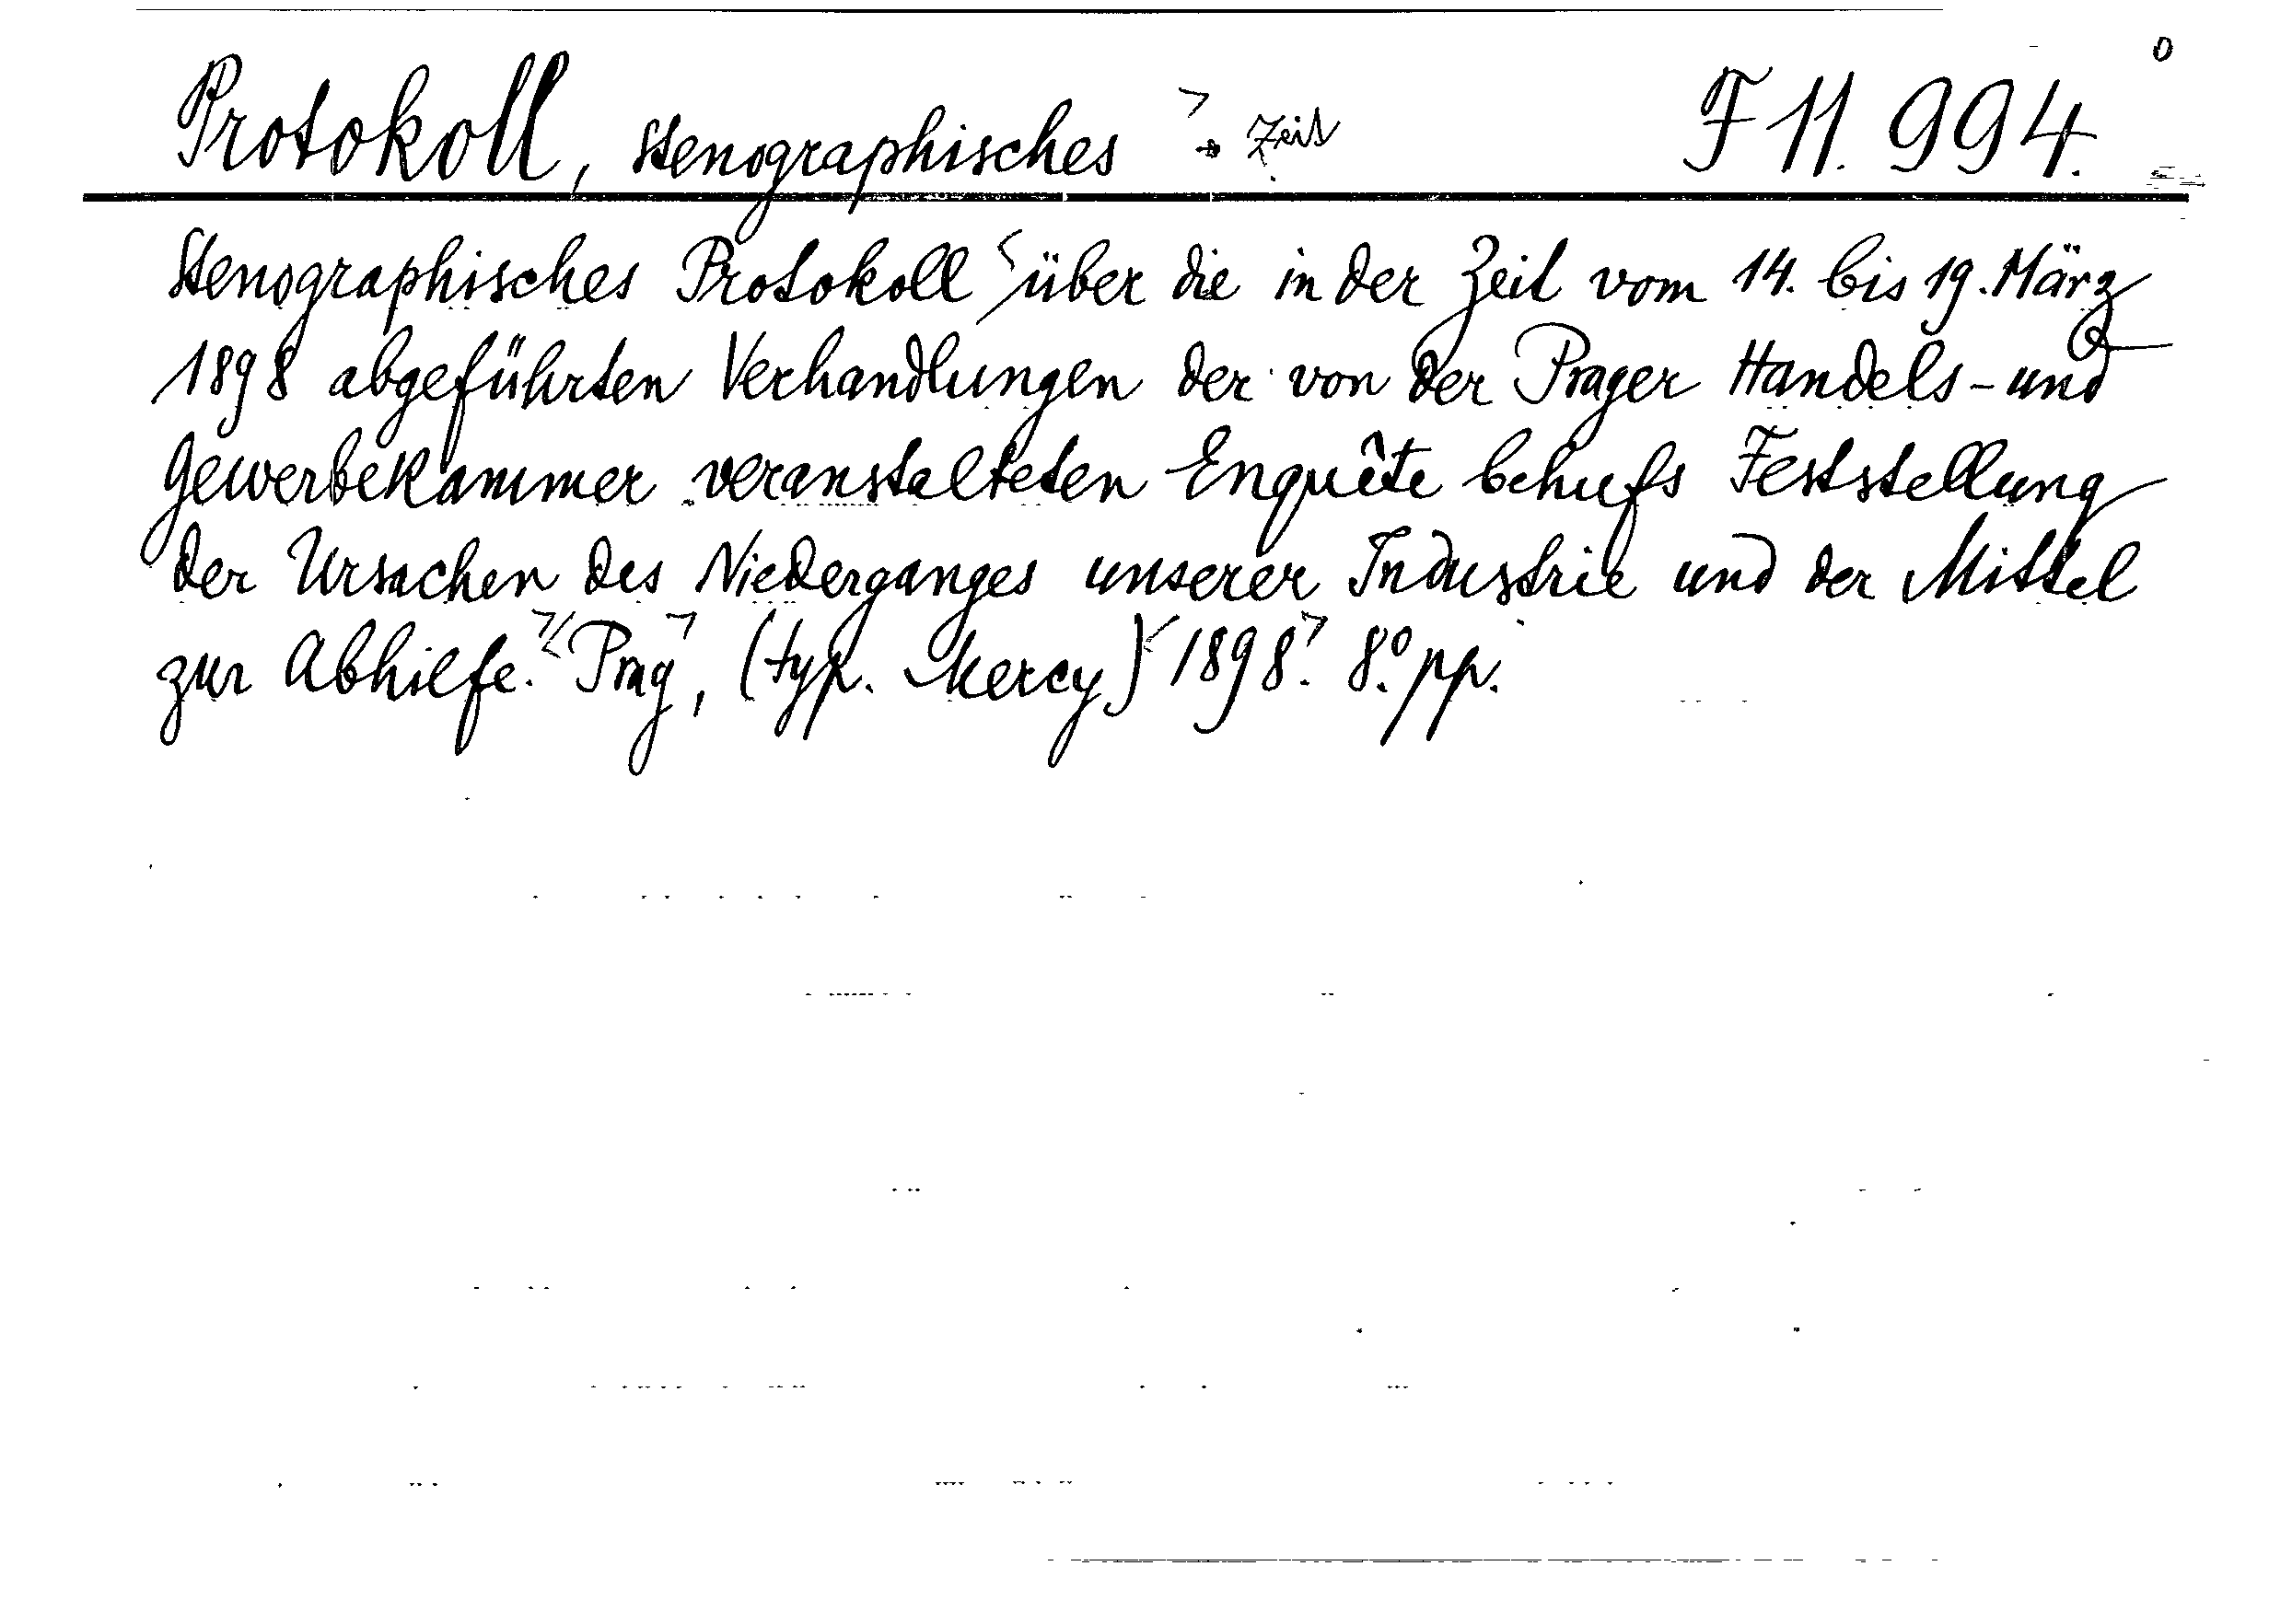 Protokoll, stenographisches → Zeit F 11.994.
Stenographisches Protokoll über die in der Zeit vom 14. bis 19. März
1898 abgeführten Verhandlungen der von der Prager Handels- und
Gewerbekammer veranstalteten Enquête behufs Feststellung
der Ursachen des Niederganges unserer Industrie und der Mittel
zur Abhilfe. Prag, (typ. Mercy) 1898. 8° pp.